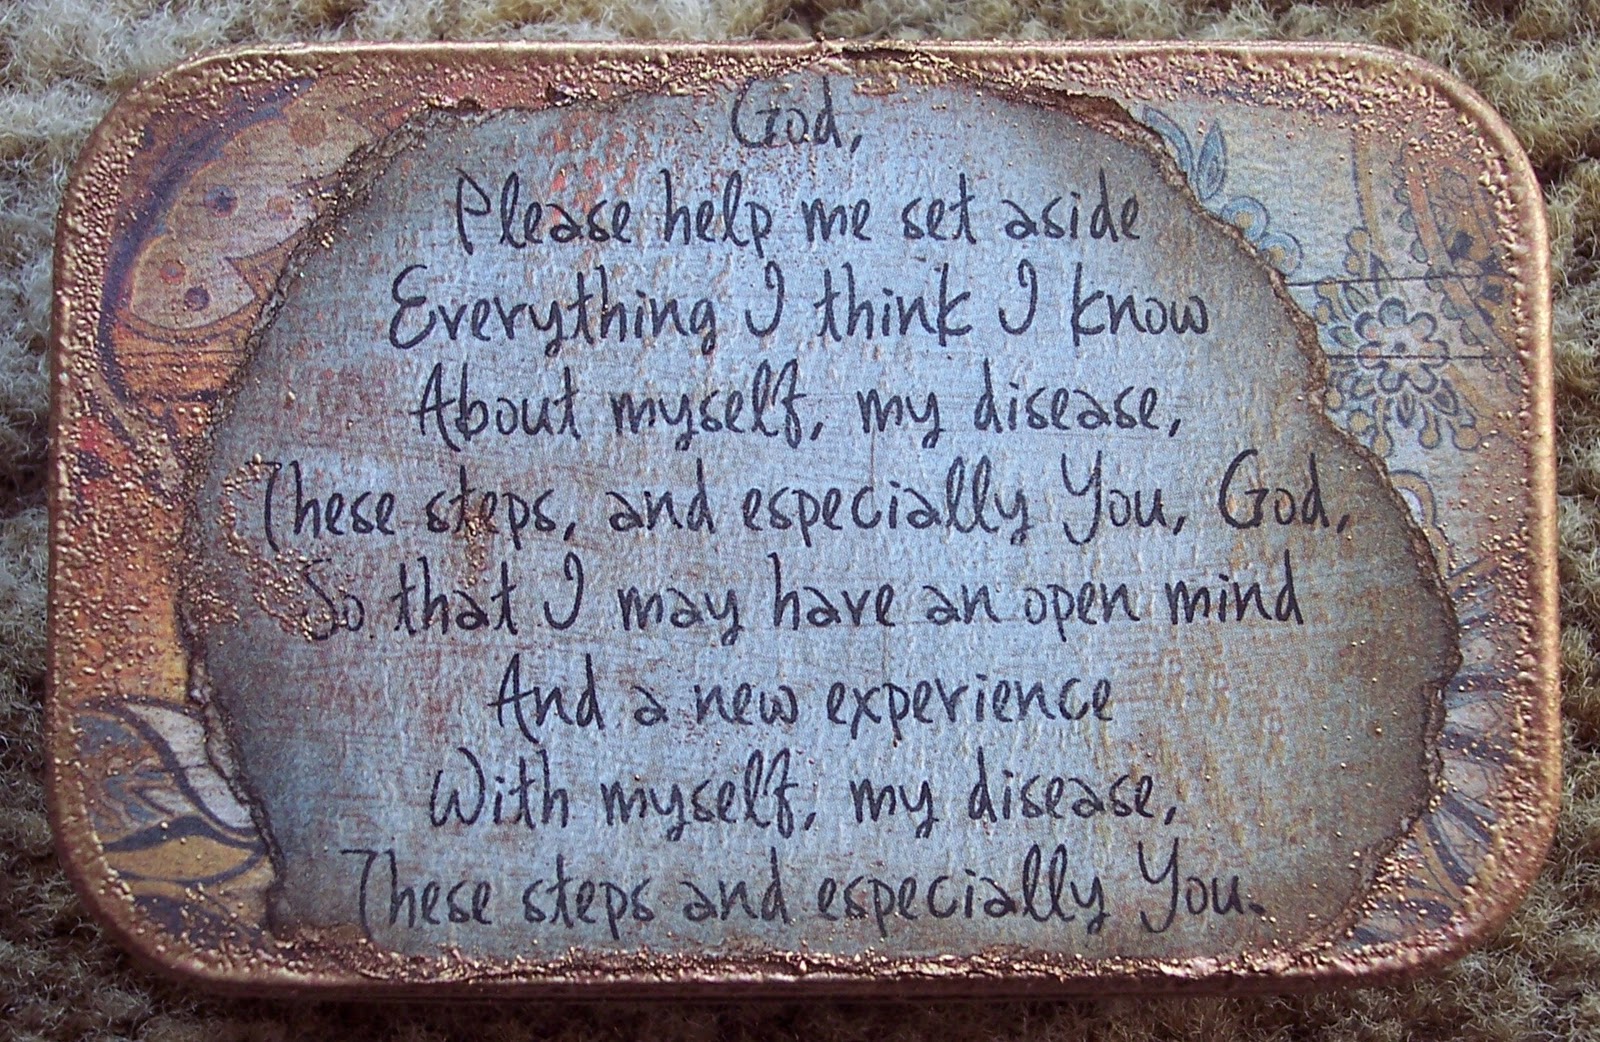 God,
Please help me set aside
Everything I think I know
About myself, my disease,
These steps, and especially You, God,
So that I may have an open mind
And a new experience
With myself, my disease,
These steps and especially You.